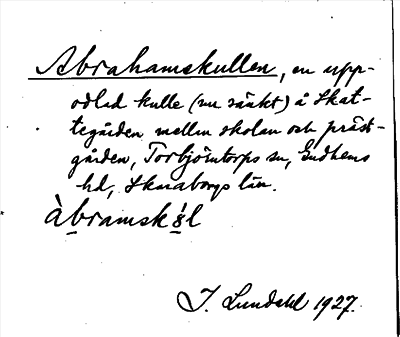 Abrahamskullen, en upp-
odlad kulle (nu sänkt) å Skat-
tegården mellan skolan och präst-
gården, Torbjörntorps sn, Gudhems
hd, Skaraborgs län.
Àbramsk
I. Lundahl 1927.